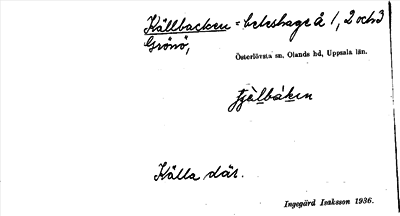 Källbacken = beteshage å 1, 2 och 3
Grönö,
Österlövsta sn, Olands hd, Uppsala län.
Källa där.
Ingegärd Isaksson 1936.